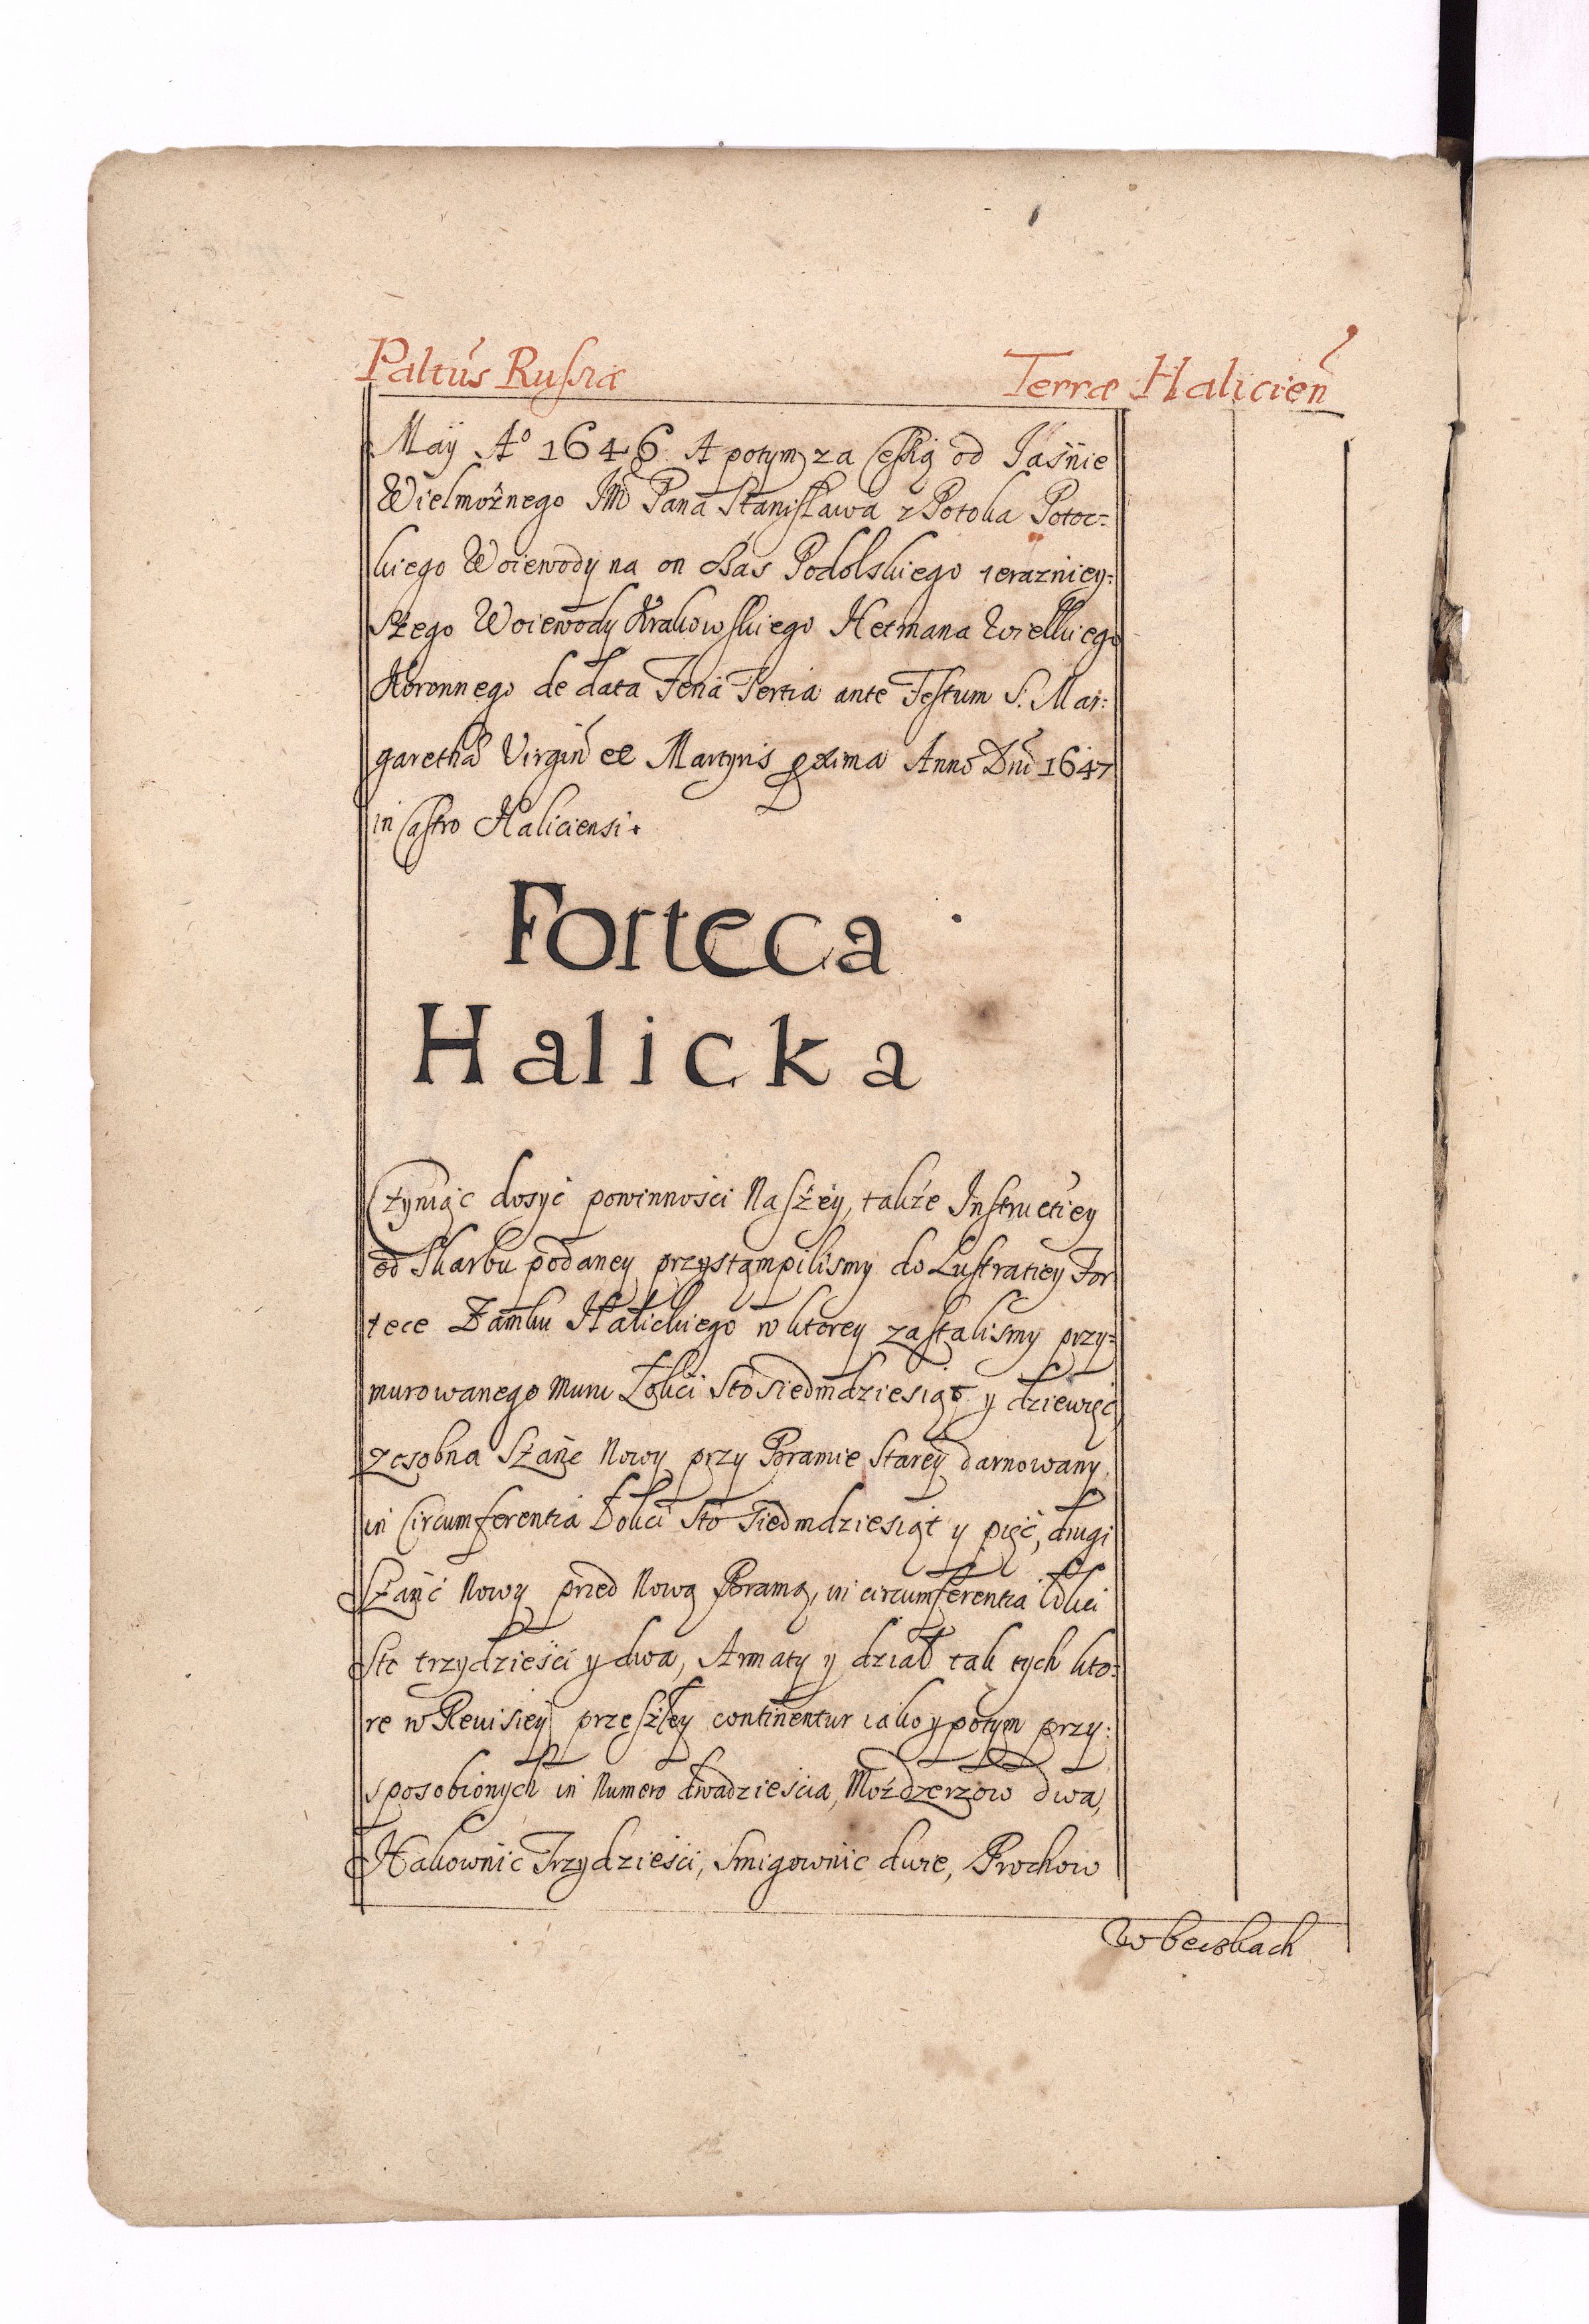 Paltũs Russiæ Terræ Halicień
Maÿ Aº 1646 A potym za Cessią od Jaśnie
Wielmożnego JM Pana Stanisława z Potoka Potoc=
kiego Woiewody na on czas Podolskiego terazniey=
szego Woiewody Krakowskiego Hetmana Wielkiego
Koronnego de data Feria Tertia ante Festum S. Mar=
garethæ Virgiń et Martyris pxima Anno Dni 1647
in Castro Haliciensi.
Forteca
Halicka
Czyniąc dosyć powinności Naszey, także Instructiey
od Skarbu podaney przystąmpilismy do Lustratiey For
tece Zamku Halickiego w ktorey zastalismy przy=
murowanego muru Łokci sto siedmdziesiąt y dziewięć
zosobna Szańc Nowy przy Bramie Starey darnowany,
in Circumferentia Łokci sto siedmdziesiąt y pięć, drugi
Szańc Nowy przed Nową Bramą, in circumferentia łokci
sto trzydzieści y dwa, Armaty y dział tak tych kto=
re w Reuisiey przeszłey continentur iako y potym przy=
sposobionych in Numero dwadzieścia, Moździerzow dwa,
Hakownic Trzydzieści, Smigownic dwie, Prochow
w beczkach